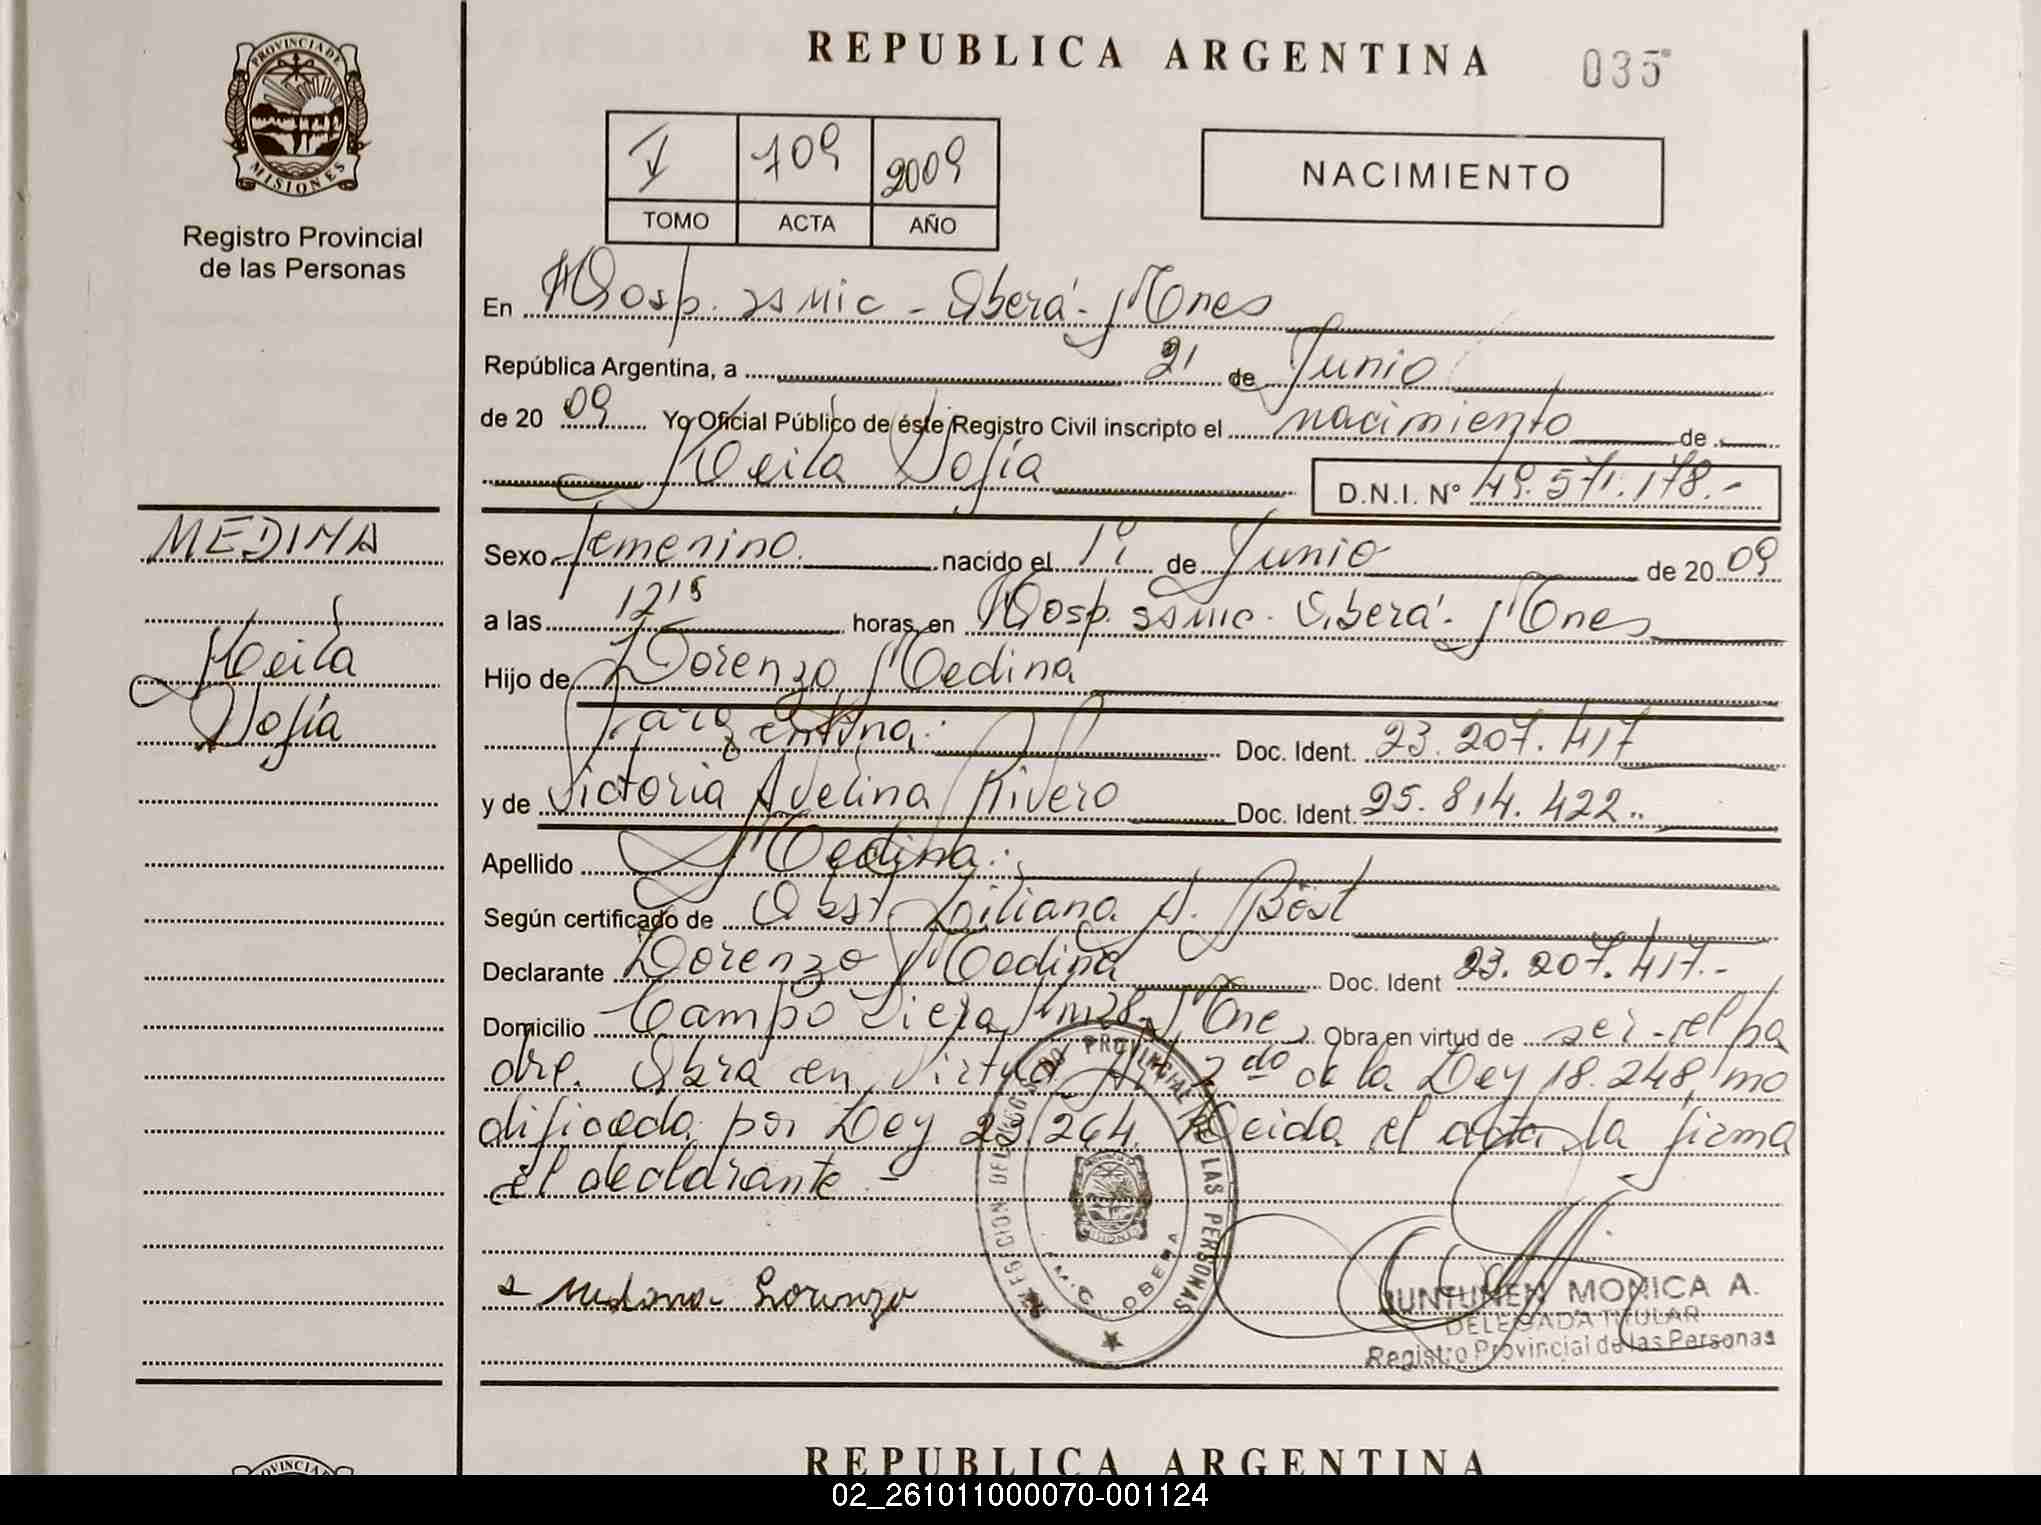 PROVINCIA DE
MISIONES
Registro Provincial
de las Personas
REPUBLICA ARGENTINA
035
I 109 2009
TOMO ACTA AÑO
NACIMIENTO
En Hosp. SSMIC - Oberá - Mnes
República Argentina, a 21 de Junio
de 2009 Yo Oficial Público de éste Registro Civil inscripto el nacimiento de
Keila Sofía D.N.I. Nº 49.571.178.-
MEDINA
Keila
Sofía
Sexo femenino nacido el 1º de Junio de 2009
a las 12 15 horas, en Hosp. SSMIC - Oberá - Mnes
Hijo de Lorenzo Medina
argentina. Doc. Ident. 23.207.417
y de Victoria Avelina Rivero Doc. Ident. 25.814.422..
Apellido Medina.
Según certificado de Obst. Liliana A. Böst
Declarante Lorenzo Medina Doc. Ident 23.207.417.-
Domicilio Campo Viera Km28 Mne Obra en virtud de ser el pa
dre. Obra en Virtud Art 2do de la Ley 18.248, mo
dificada por Ley 23.264. Leida el acta la firma
el declarante.-
Medina Lorenzo
DELEGACION DEL REGISTRO PROVINCIAL DE LAS PERSONAS
MISIONES
OBERA
JUNTUNEN MONICA A.
DELEGADA TITULAR
Registro Provincial de las Personas
REPUBLICA ARGENTINA
02_261011000070-001124